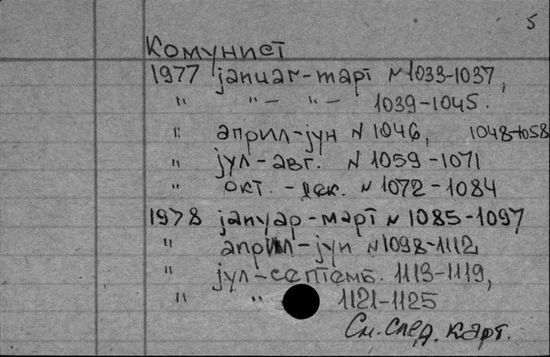 5
Комунист
1977 јануаг-март N 1033-1037,
" " - " - 1039-1045.
" април-јун N 1046, 1048-1058
" јул-авг. N 1059-1071
" окт. - дек. N 1072-1084
1978 јануар-март N 1085-1097
" април-јун N 1098-1112
" јул-септемб. 1113-1119,
" " 1121-1125
См. след. карт.